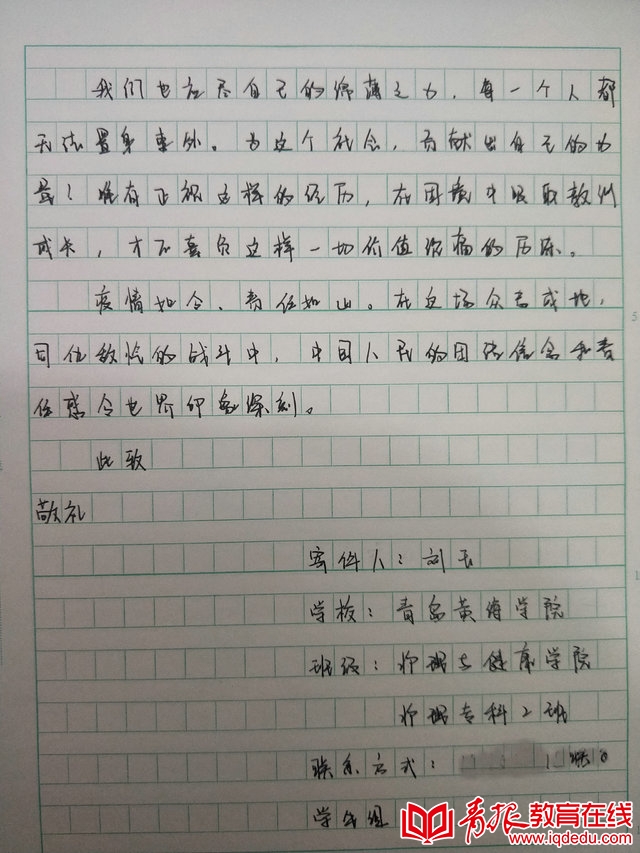 我们也应尽自己的绵薄之力，每一个人都
无法置身事外。为这个社会，贡献出自己的力
量！唯有正视这样的经历，在困难中吸取教训
成长，才不辜负这样一切价值沉痛的历练。
疫情如令，责任如山。在这场众志成城，
同仇敌忾的战斗中，中国人民的团结信念和责
任感令世界印象深刻。
此致
敬礼
寄件人：刘玉
学校：青岛黄海学院
班级：护理与健康学院
护理专科2班
联系方式：
学生组
青报教育在线
www.iqdedu.com